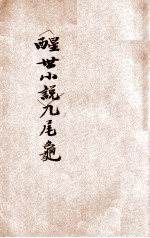 醒世小說九尾龜